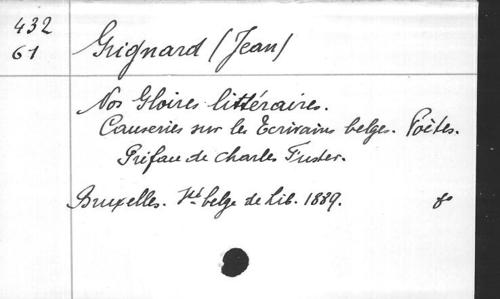 432
61
Grignard (Jean)
Nos Gloires littéraires.
Causeries sur les Ecrivains belges. Poètes.
Préface de Charles Fuster.
Bruxelles. Sté belge de Lib. 1889. 8º